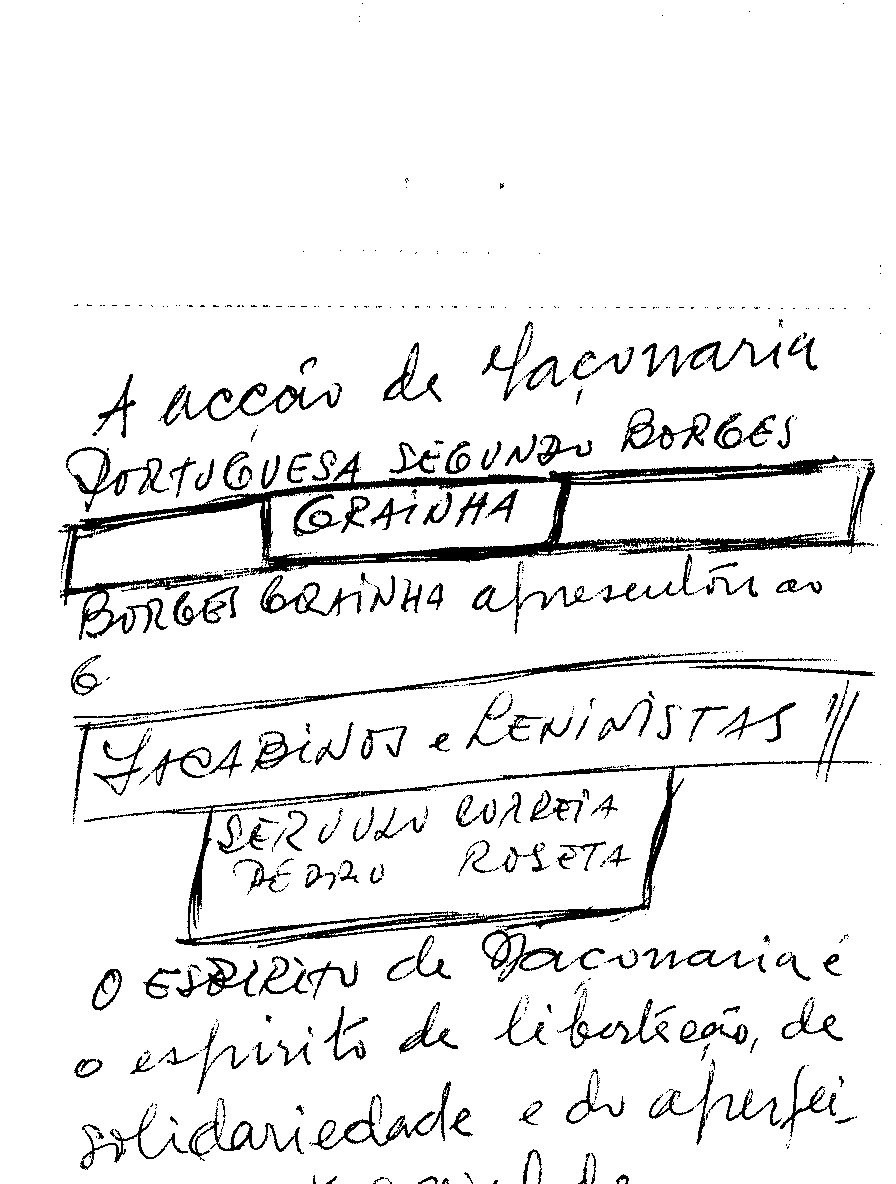 A acção da Maçonaria
PORTUGUESA SEGUNDO BORGES
GRAINHA
BORGES GRAINHA apresentou ao
G
JACABINOS e LENINISTAS
SERVULO CORREIA
PEDRO ROSETA
O ESPIRITO da Maçonaria é
o espirito de libertação, de
solidariedade e do aperfei-